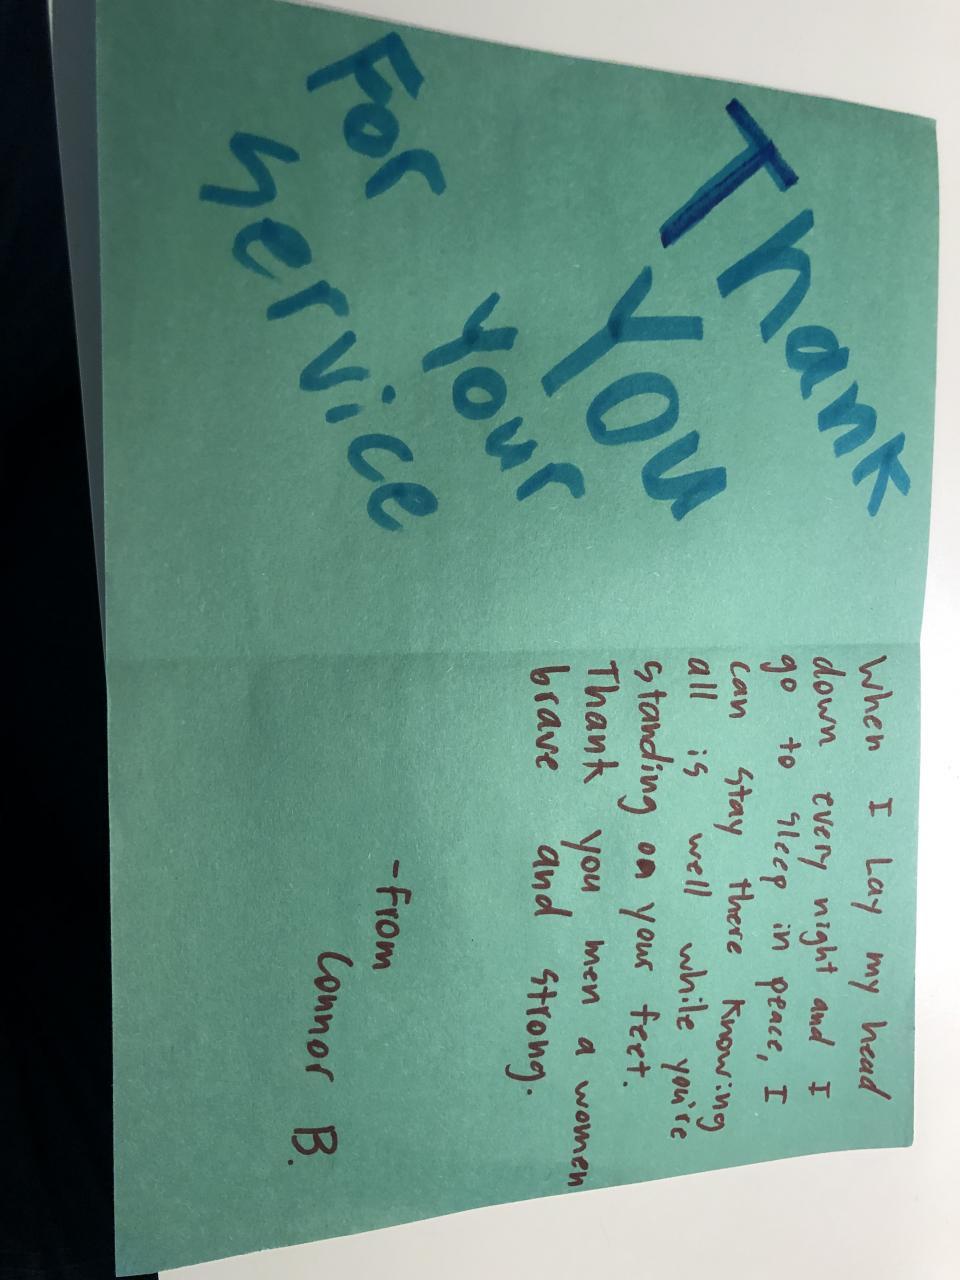 Thank
You
For your
Service
When I Lay my head
down every night and I
go to sleep in peace, I
can stay there knowing
all is well while you're
standing on your feet.
Thank you men a women
brave and strong.
-From
Connor B.